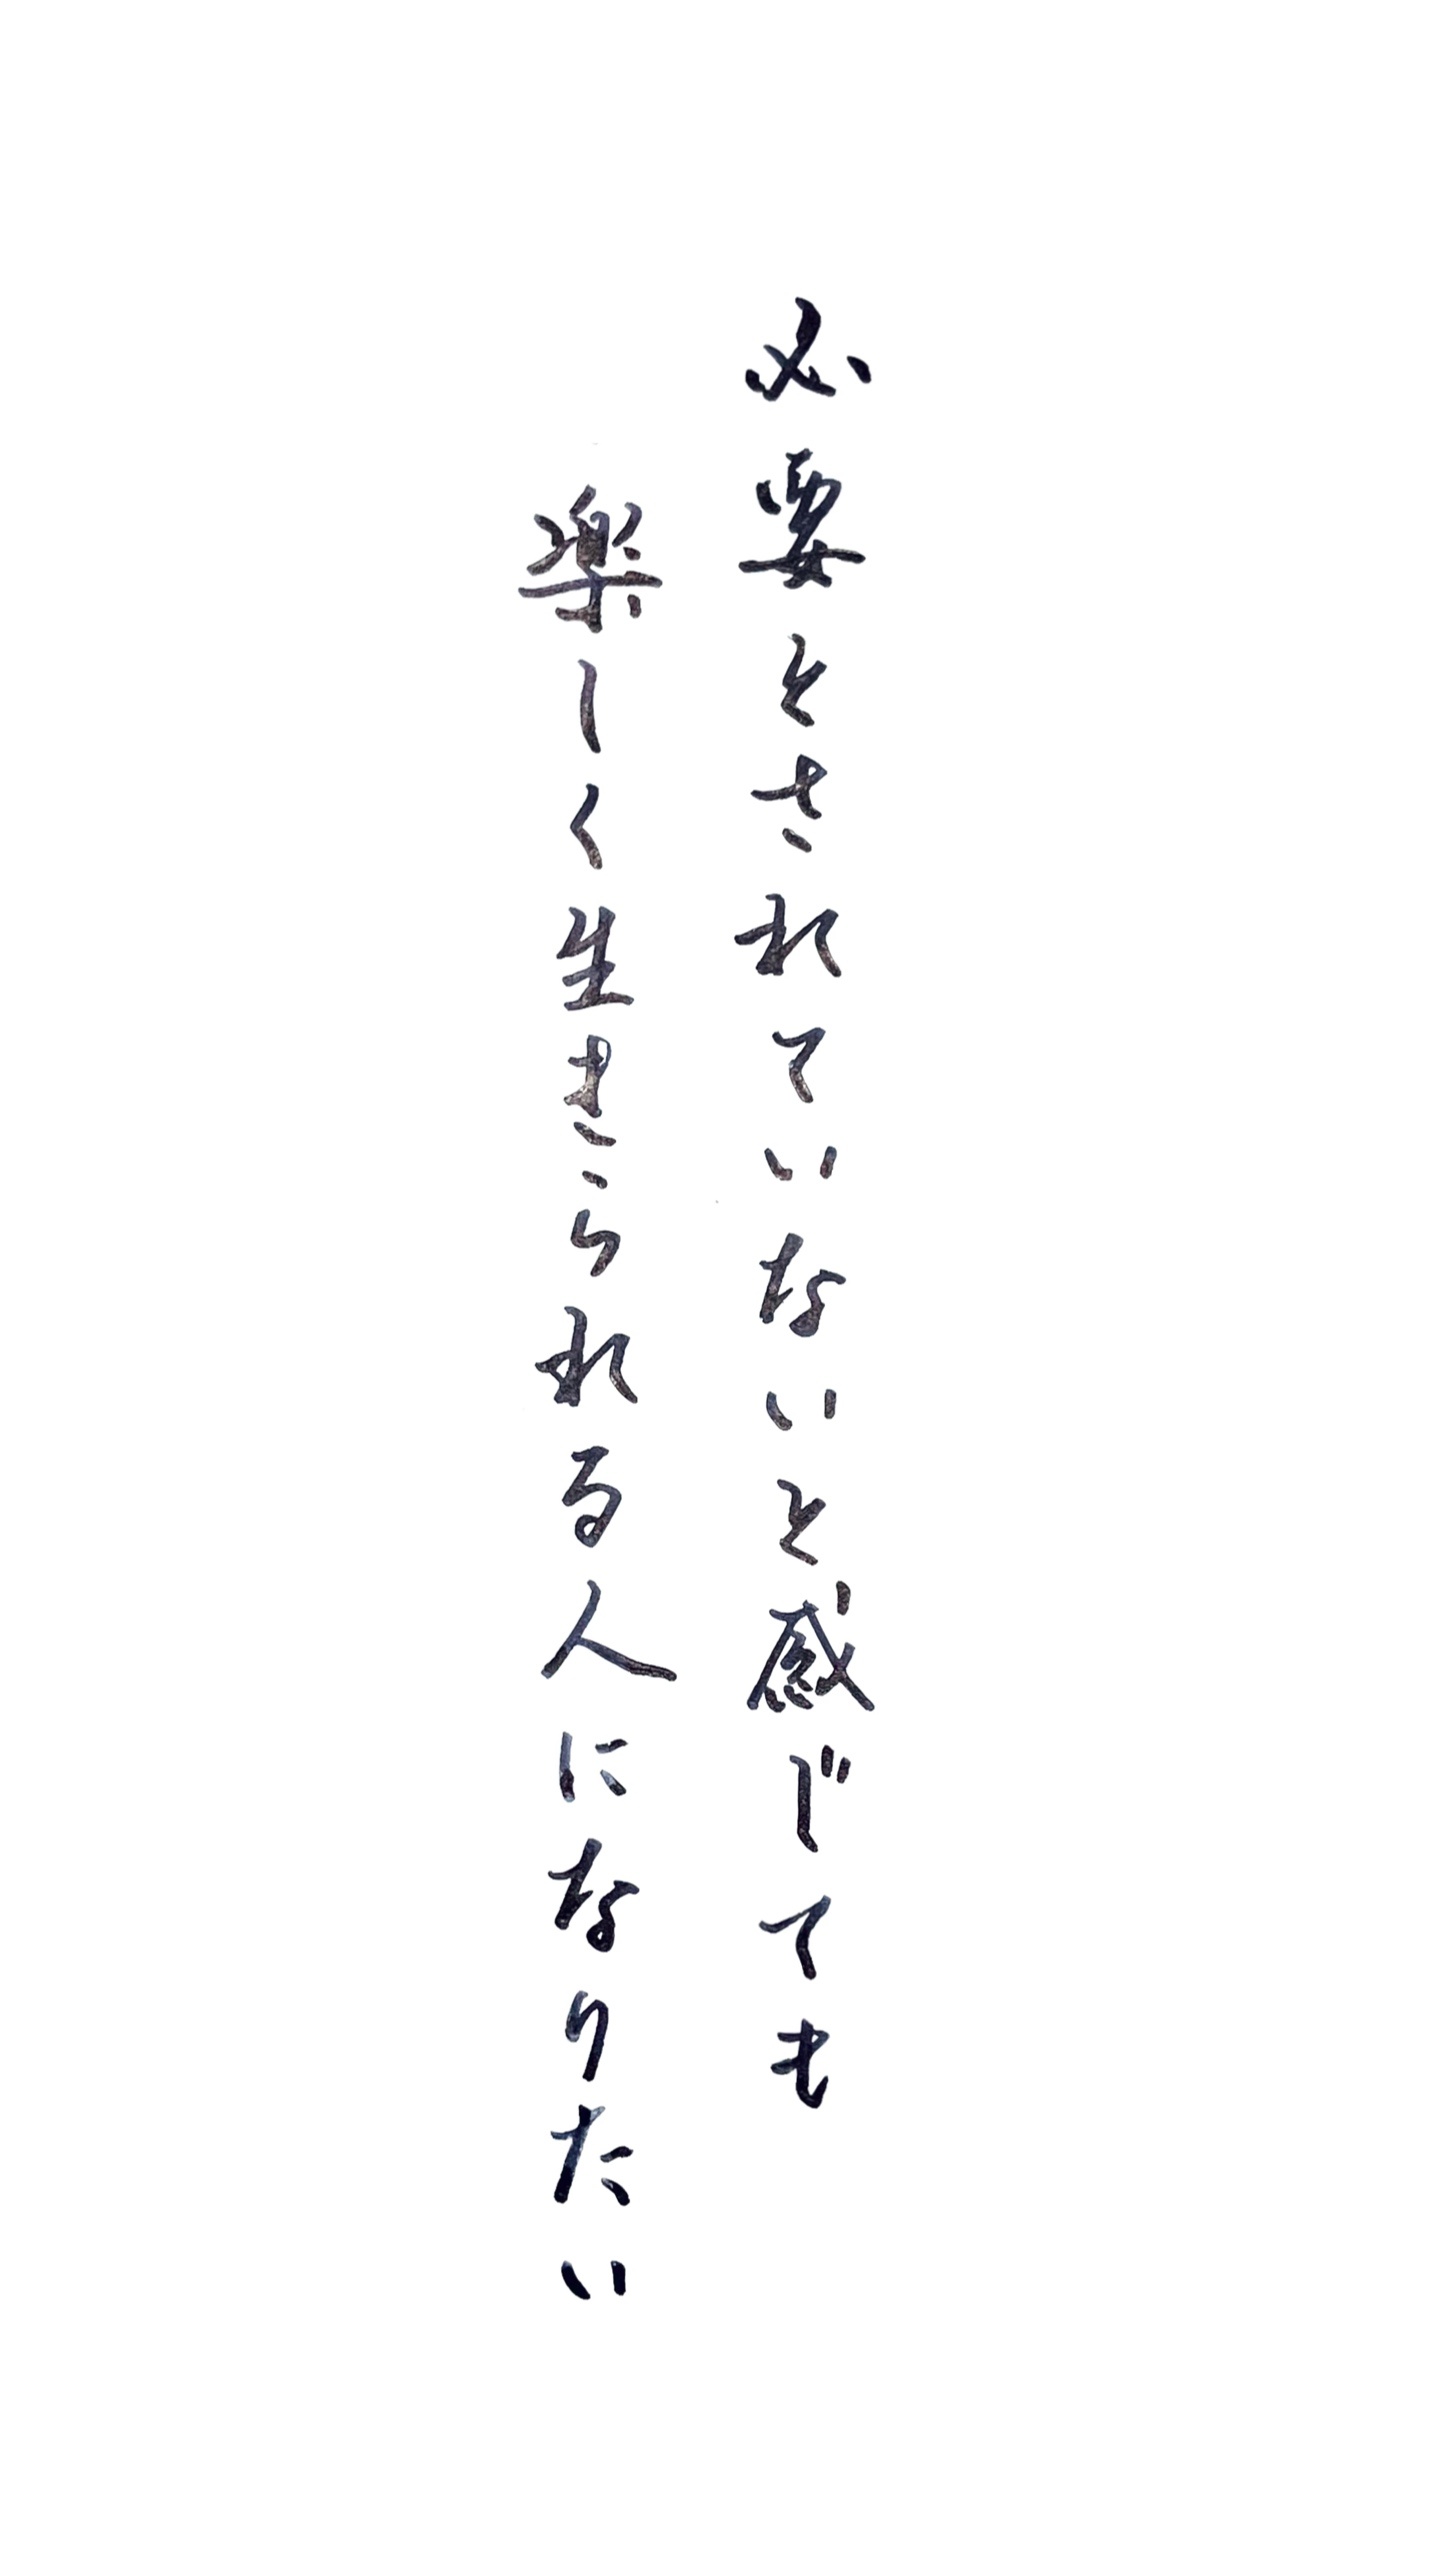 必要とされていないと感じても
楽しく生きられる人になりたい